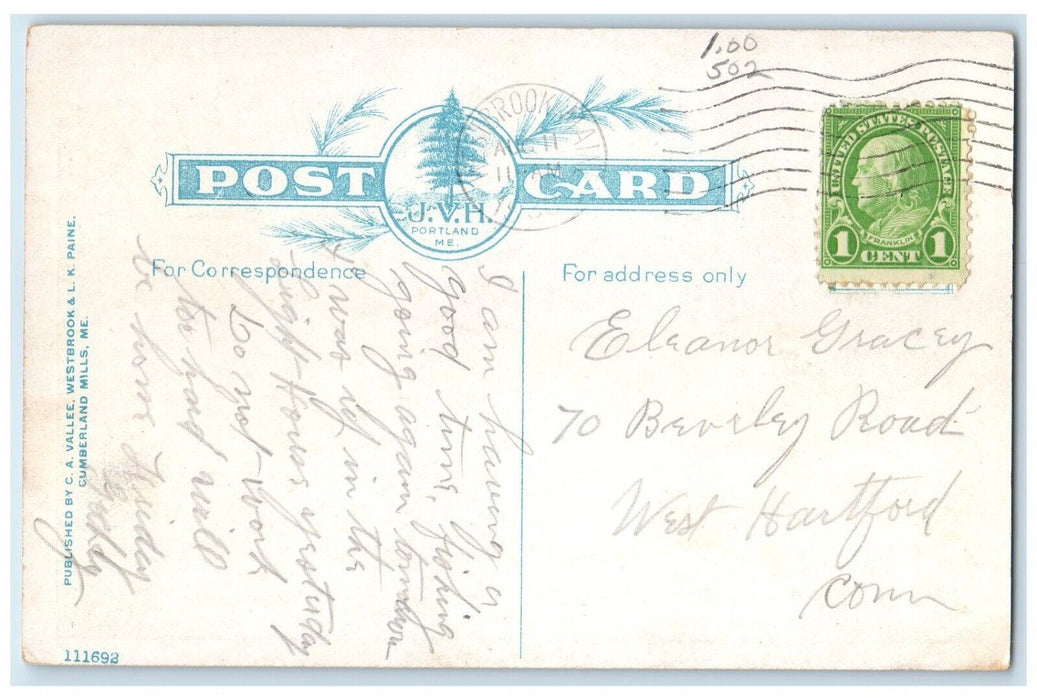 1.00
502
POST CARD
J.V.H.
PORTLAND
ME.
UNITED STATES POSTAGE
FRANKLIN
1 CENT 1
For Correspondence
For address only
I am having a
good time, fishing
going again tomorrow
I was in the
Light House yesterday
Do not work
too hard will
be home Friday
Eleanor Gracey
70 Beverley Road
West Hartford
Conn
PUBLISHED BY C. A. VALLEE, WESTBROOK & L. K. PAINE,
CUMBERLAND MILLS, ME.
111692